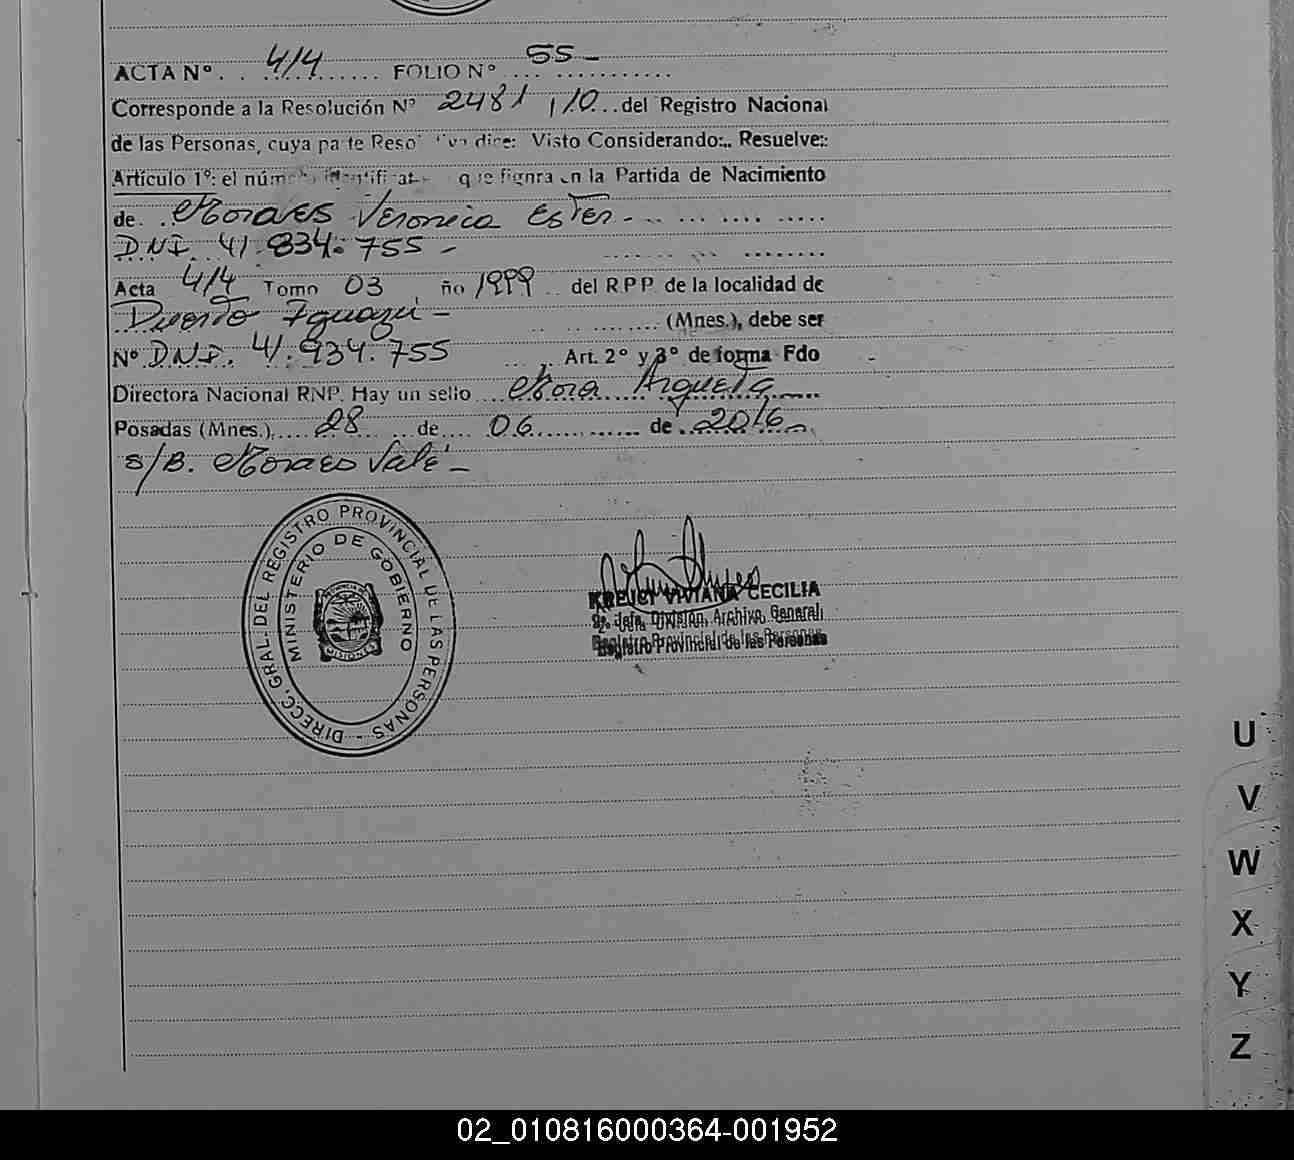 ACTA Nº. . 414 .......... FOLIO Nº .... 55 - ...........
Corresponde a la Resolución Nº 2481 /10...del Registro Nacional
de las Personas, cuya parte Reso dice: Visto Considerando:.. Resuelve::
Artículo 1º: el número identificat que figura en la Partida de Nacimiento
de. .. Moraes Veronica Ester - .. ... .... .... .....
D.N.I. 41.834.755 -
Acta 414 Tomo 03 ño 1999 .. del R.P.P. de la localidad de
Puerto Iguazú - .. .. ......... (Mnes.), debe ser
Nº D.N.I. 41.934.755 .... .. Art. 2º y 3º de forma Fdo
Directora Nacional RNP. Hay un sello .... Mora Arqueta
Posadas (Mnes.),.... 28 .. de.... 06............. de 2016
S/B. Moraes Vale -
DIRECC. GRAL. DEL REGISTRO PROVINCIAL DE LAS PERSONAS -
MINISTERIO DE GOBIERNO
MISIONES
KREJCI VIVIANA CECILIA
2º Jefe División, Archivo General
Registro Provincial de las Personas
U
V
W
X
Y
Z
02_010816000364-001952